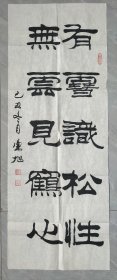 有雪識松性
無雲見鶴心
己丑冬月